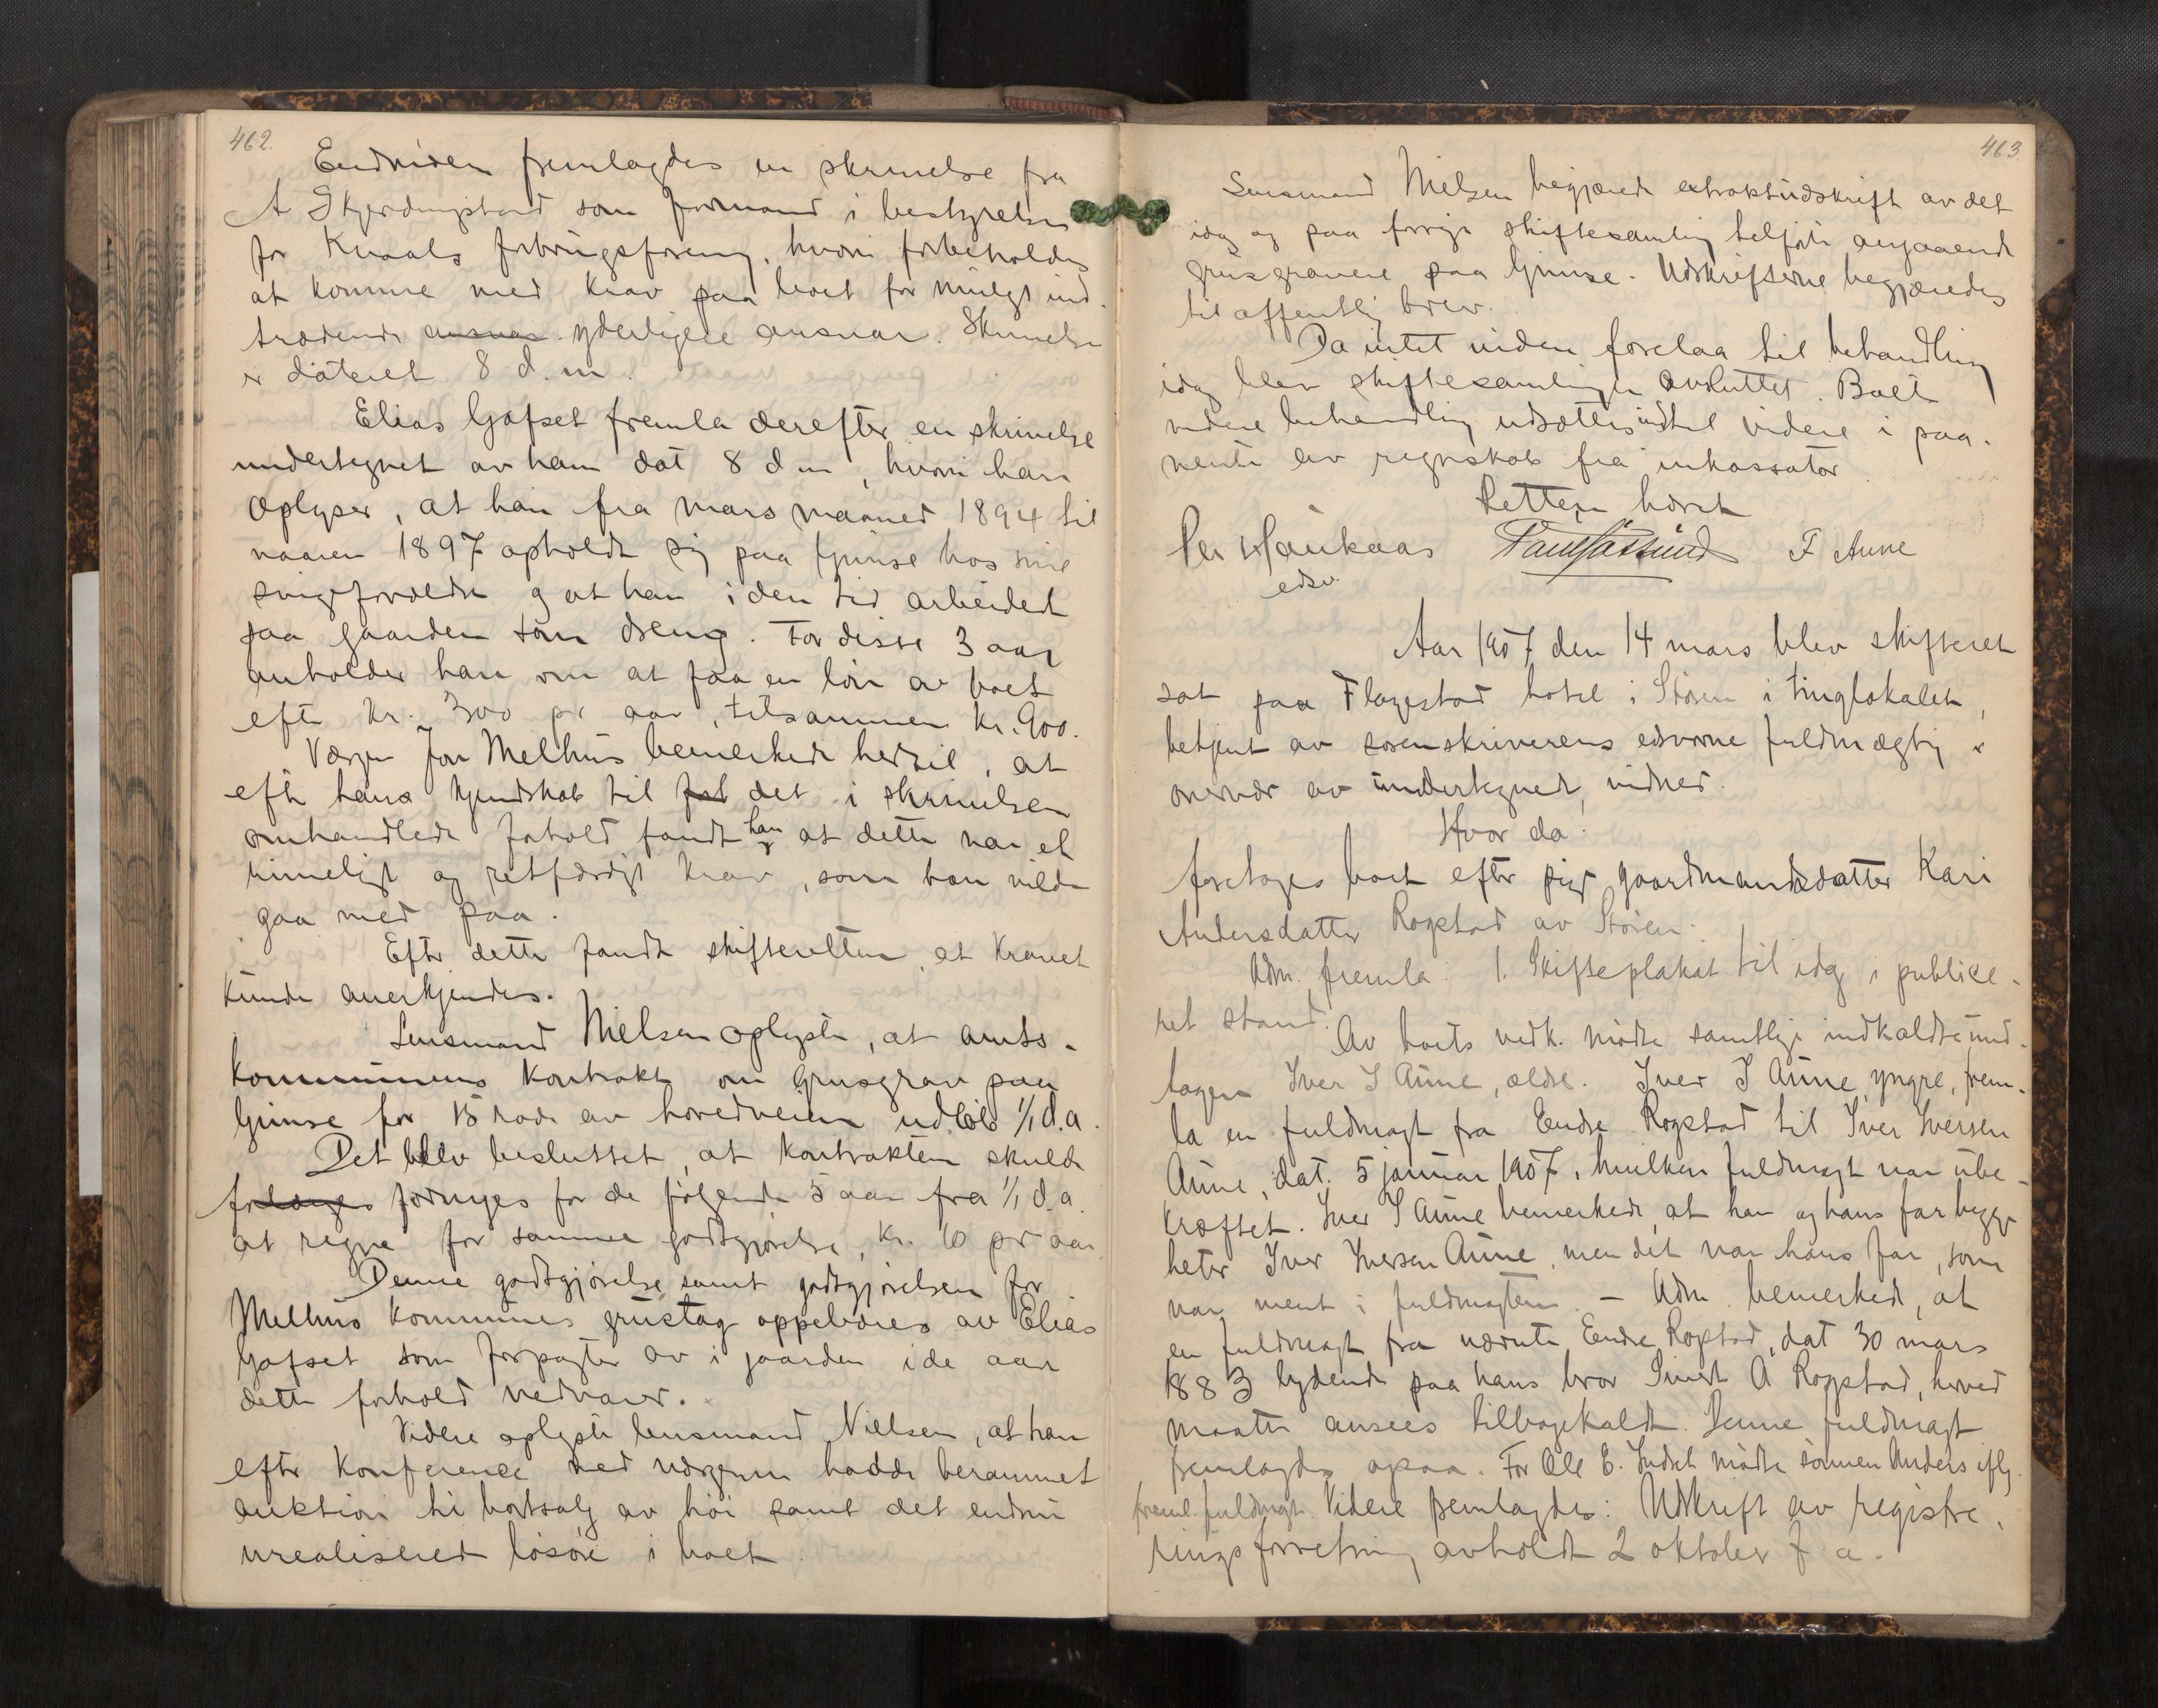 462.
Endvidere fremlagdes en skrivelse fra
A Skjerdingstad som formand i bestyrelsen
for Kvaals forbrugsforening, hvori forbeholdes
at komme med krav paa boet for muligt ind-
trædende ansvar yderligere ansvar. Skrivelsen
er dateret 8 d.m.
Elias Gofset fremla derefter en skrivelse
undertegnet av ham dat 8 d m, hvori han
oplyser, at han fra mars maaned 1894 til
vaaren 1897 opholdt sig paa Gimse hos sine
svigerforældre og at han i den tid arbeidet
paa gaarden som dreng. For disse 3 aar
anholder han om at faa en løn av boet
efter kr. 300 pr aar, tilsammen kr. 900.
Værgen Jon Melhus bemerkede hertil, at
efter hans kjendskab til det i skrivelsen
omhandlede forhold fandt han at dette var et
rimeligt og retfærdigt krav, som han vilde
gaa med paa.
Efter dette fandt skifteretten at kravet
kunde anerkjendes.
Lensmand Nielsen oplyste, at amts-
kommunens kontrakt om grusgrav paa
Gimse for 15 rode av hovedveien udløb 1/1 d.a.
Det blev besluttet, at kontrakten skulde
forlænges fornyes for de følgende 5 aar fra 1/1 d.a.
at regne for samme godtgjørelse, kr. 10 pr aar.
Denne godtgjørelse samt godtgjørelsen for
Melhus kommunes grustag oppebæres av Elias
Gofset som forpagter av i gaarden i de aar
dette forhold vedvarer.
Videre oplyste lensmand Nielsen, at han
efter konference med værgerne hadde berammet
auktion til bortsalg av høi samt det endnu
urealiserede løsøre i boet.
463.
Lensmand Nielsen begjærede extraktudskrift av det
idag og paa forrige skiftesamling tilførte angaaende
grusgravene paa Gimse. Udskrifterne begjæredes
til offentlig brev.
Da intet videre forelaa til behandling
idag blev skiftesamlingen avsluttet. Boets
videre behandling udsættes indtil videre i paa-
vente av regnskab fra inkassator.
Retten hævet
Per Haukaas F Aune
edsv.
Aar 1907 den 14 mars blev skifteret
sat paa Flagestad hotel i Støren i tinglokalet,
betjent av sorenskriverens edsvorne fuldmægtig i
overvær av undertegnede vidner.
Hvor da:
foretoges boet efter pige gaardmandsdatter Kari
Andersdatter Rogstad av Støren.
Adm. fremla: 1. Skifteplakat til idag i publice-
ret stand.
Av boets vedk. mødte samtlige indkaldte und-
tagen Iver I Aune, ældre. Iver I Aune, yngre, frem-
la en fuldmagt fra Endre Rogstad til Iver Iversen
Aune, dat. 5 januar 1907, hvilken fuldmagt var ube-
kræftet. Iver I Aune bemerkede, at han og hans far begge
heter Iver Iversen Aune, men det var hans far, som
var ment i fuldmagten. – Adm. bemerkede, at
en fuldmagt fra nævnte Endre Rogstad, dat 30 mars
1883 lydende paa hans bror Sivert A Rogstad, herved
maatte ansees tilbagekaldt. Denne fuldmagt
fremlagdes ogsaa. For Ole E. mødte sønnen Anders iflg.
freml. fuldmagt. Videre fremlagdes: Udskrift av registre-
ringsforretning avholdt 2 oktober f. a.